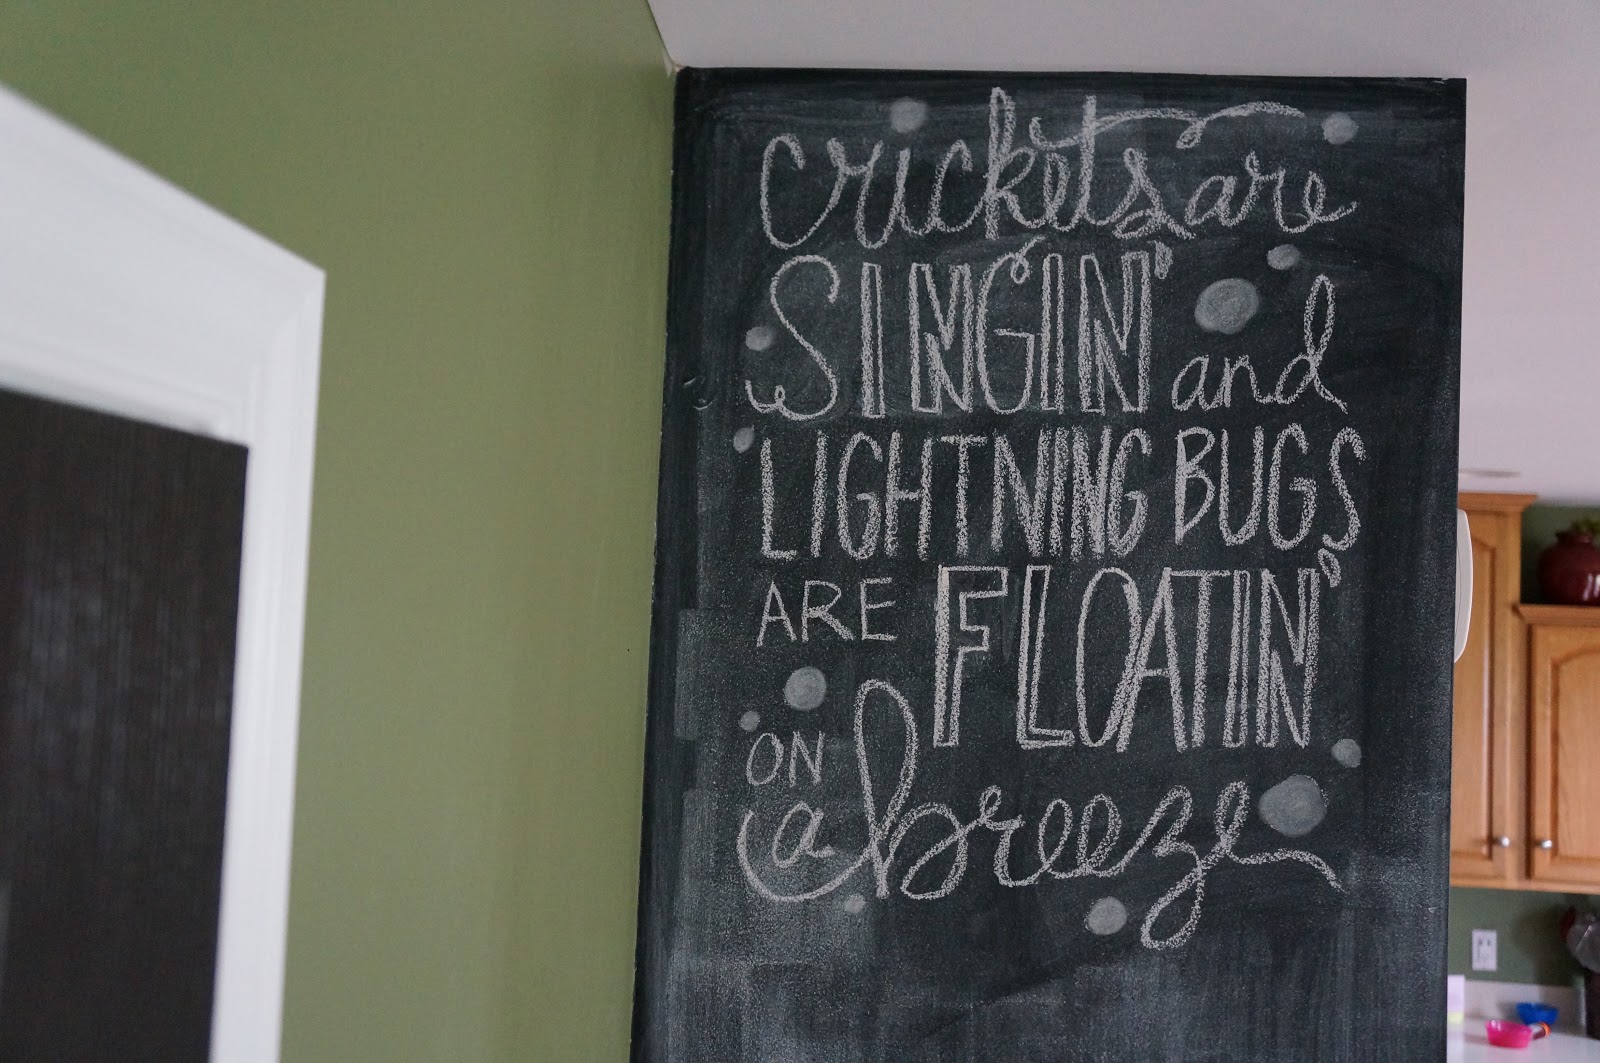 crickets are
SINGIN' and
LIGHTNING BUGS
ARE FLOATIN'
ON
a breeze